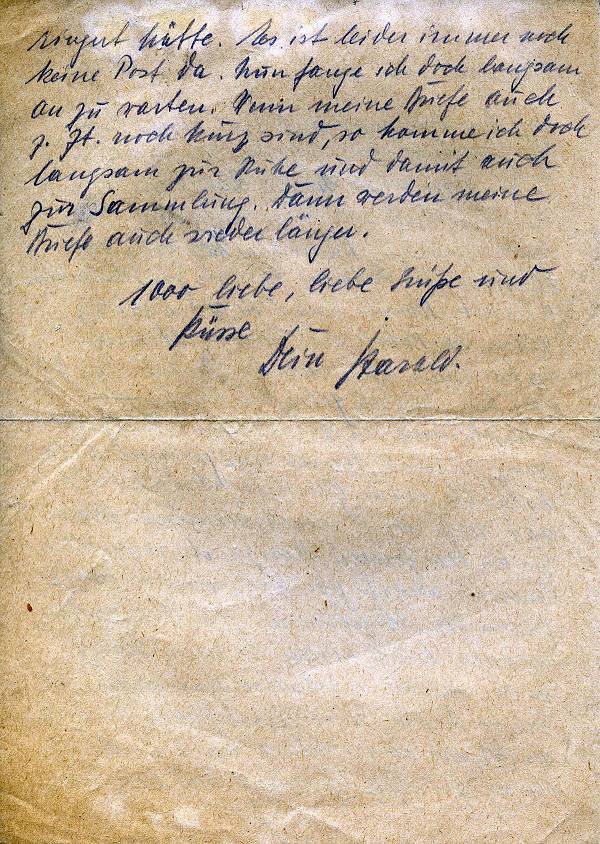 hätte. Es ist leider immer noch
keine Post da. Nun fange ich doch langsam
an zu warten. Wenn meine Briefe auch
z. Zt. noch kurz sind, so komme ich doch
langsam zur Ruhe und damit auch
zur Sammlung. Dann werden meine
Briefe auch wieder länger.
1000 liebe, liebe Grüße und
Küsse
Dein Harald.